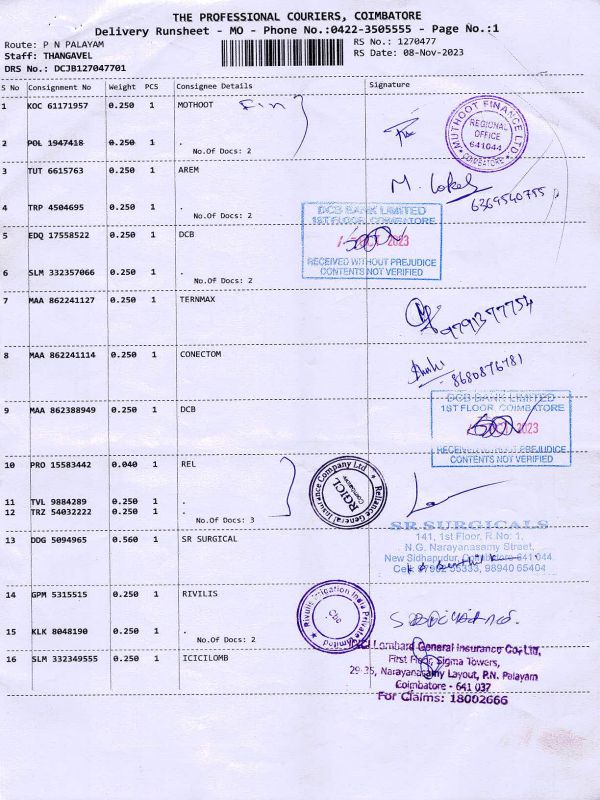 THE PROFESSIONAL COURIERS, COIMBATORE
Delivery Runsheet - MO - Phone No.:0422-3505555 - Page No.:1
Route: P N PALAYAM
Staff: THANGAVEL
DRS No.: DCJB127047701
RS No.: 1270477
RS Date: 08-Nov-2023
S No Consignment No Weight PCS Consignee Details Signature
1 KOC 61171957 0.250 1 MOTHOOT Fin
MUTHOOT FINANCE LTD
REGIONAL
OFFICE
641044
COIMBATORE
2 POL 1947418 0.250 1 .
No.Of Docs: 2
3 TUT 6615763 0.250 1 AREM
M.
6369540755
4 TRP 4504695 0.250 1 .
No.Of Docs: 2
DCB BANK LIMITED
1ST FLOOR, COIMBATORE
5 EDQ 17558522 0.250 1 DCB
2023
RECEIVED WITHOUT PREJUDICE
CONTENTS NOT VERIFIED
6 SLM 332357066 0.250 1 .
No.Of Docs: 2
7 MAA 862241127 0.250 1 TERNMAX
9791377754
8 MAA 862241114 0.250 1 CONECTOM
8680876781
DCB BANK LIMITED
1ST FLOOR, COIMBATORE
9 MAA 862388949 0.250 1 DCB
2023
RECEIVED WITHOUT PREJUDICE
CONTENTS NOT VERIFIED
10 PRO 15583442 0.040 1 REL
Reliance General Insurance Company Ltd.
RGICL
Coimbatore
11 TVL 9884289 0.250 1 .
12 TRZ 54032222 0.250 1 .
No.Of Docs: 3
13 DDG 5094965 0.560 1 SR SURGICAL
SR SURGICALS
141, 1st Floor, R.No: 1,
N.G. Narayanasamy Street,
New Sidhapudur, Coimbatore-641 044.
35333, 98940 65404
14 GPM 5315515 0.250 1 RIVILIS
Rivulis Irrigation India Private Limited
Cbe
15 KLK 8048190 0.250 1 .
No.Of Docs: 2
16 SLM 332349555 0.250 1 ICICILOMB
ICICI Lombard General Insurance Co. Ltd,
First Floor, Sigma Towers,
29-35, Narayanasamy Layout, P.N. Palayam
Coimbatore - 641 037
For Claims: 18002666